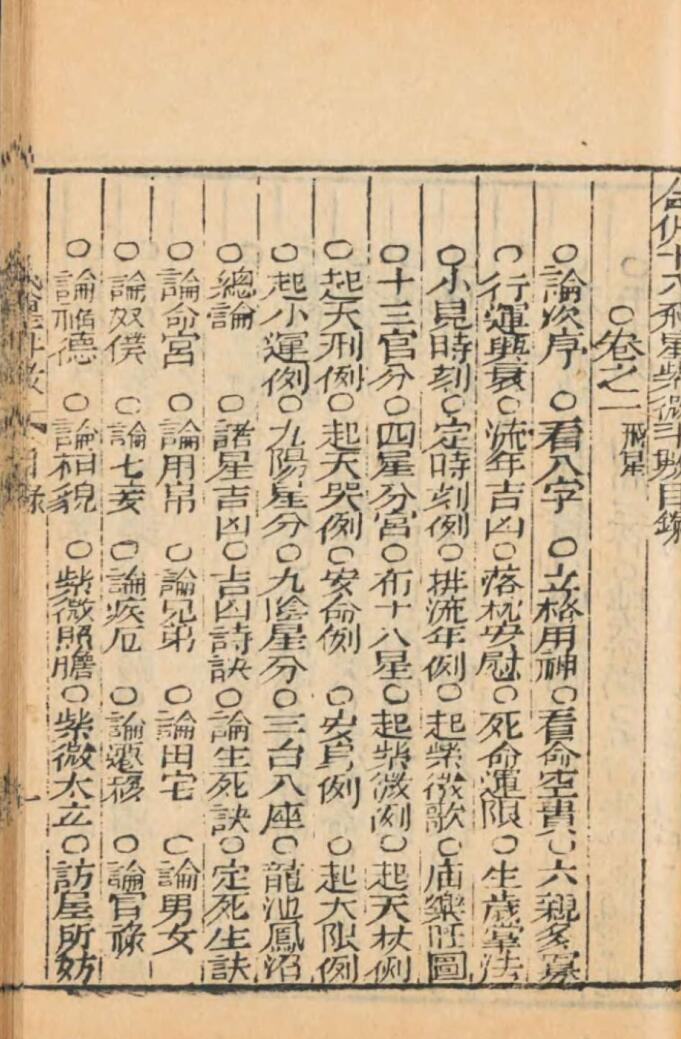 合併十八飛星紫微斗數目錄
○卷之一 飛星
○論次序 ○看八字 ○立格用神○看命空實○六親多寡
○行運興衰○流年吉凶○落枕安慰○死命運限○生歲掌法
○小兒時刻○定時刻例○排流年例○起紫微歌○庙樂旺圖
○十三官分○四星分宮○布十八星○起紫微例○起天杖例
○起天刑例○起天哭例○安命例 ○安身例 ○起大限例
○起小運例○九陽星分○九陰星分○三台八座○龍池鳳沼
○總論 ○諸星吉凶○吉凶詩訣○論生死訣○定死生訣
○論命宮 ○論用帛 ○論兄弟 ○論田宅 ○論男女
○論奴僕 ○論七妾 ○論疾厄 ○論遷移 ○論官祿
○論福德 ○論相貌 ○紫微照膽○紫微太立○訪屋所妨
目錄 一